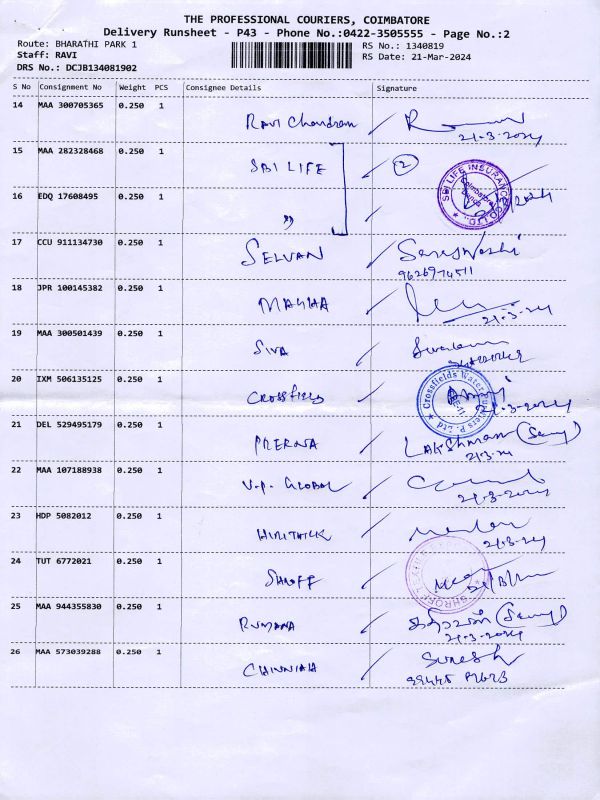 THE PROFESSIONAL COURIERS, COIMBATORE
Delivery Runsheet - P43 - Phone No.:0422-3505555 - Page No.:2
Route: BHARATHI PARK 1
RS No.: 1340819
Staff: RAVI
RS Date: 21-Mar-2024
DRS No.: DCJB134081902
S No Consignment No Weight PCS Consignee Details Signature
14 MAA 300705365 0.250 1 Ravi Chandran
21-3-2024
15 MAA 282328468 0.250 1 SBI LIFE 2
SBI LIFE INSURANCE CO. LTD.
16 EDQ 17608495 0.250 1 "
17 CCU 911134730 0.250 1 SELVAN
18 JPR 100145382 0.250 1
21-3-24
19 MAA 300501439 0.250 1 SIVA
20 IXM 506135125 0.250 1 CROSSFIELD
Crossfields Water Purifiers P. Ltd
21-3-2024
21 DEL 529495179 0.250 1 PRERNA LAKSHMANAN
21-3-24
22 MAA 107188938 0.250 1 V.P. GLOBAL
21-3-2024
23 HDP 5082012 0.250 1
21-3-24
24 TUT 6772021 0.250 1 SHROFF
25 MAA 944355830 0.250 1 RUMANA
21-3-2024
26 MAA 573039288 0.250 1 CHINNIAH SURESH